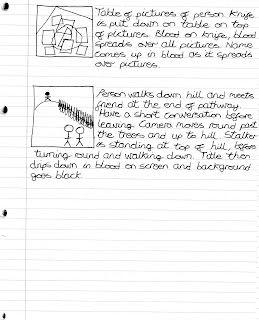 Table of pictures of person. Knife
is put down on table on top
of pictures. Blood on knife, blood
spreads over all pictures. Name
comes up in blood as it spreads
over pictures.
Person walks down hill and meets
friend at the end of pathway.
Have a short conversation before
leaving. Camera moves round past
the trees and up to hill. Stalker
is standing at top of hill, before
turning round and walking down. Title then
drips down in blood on screen and background
goes black.